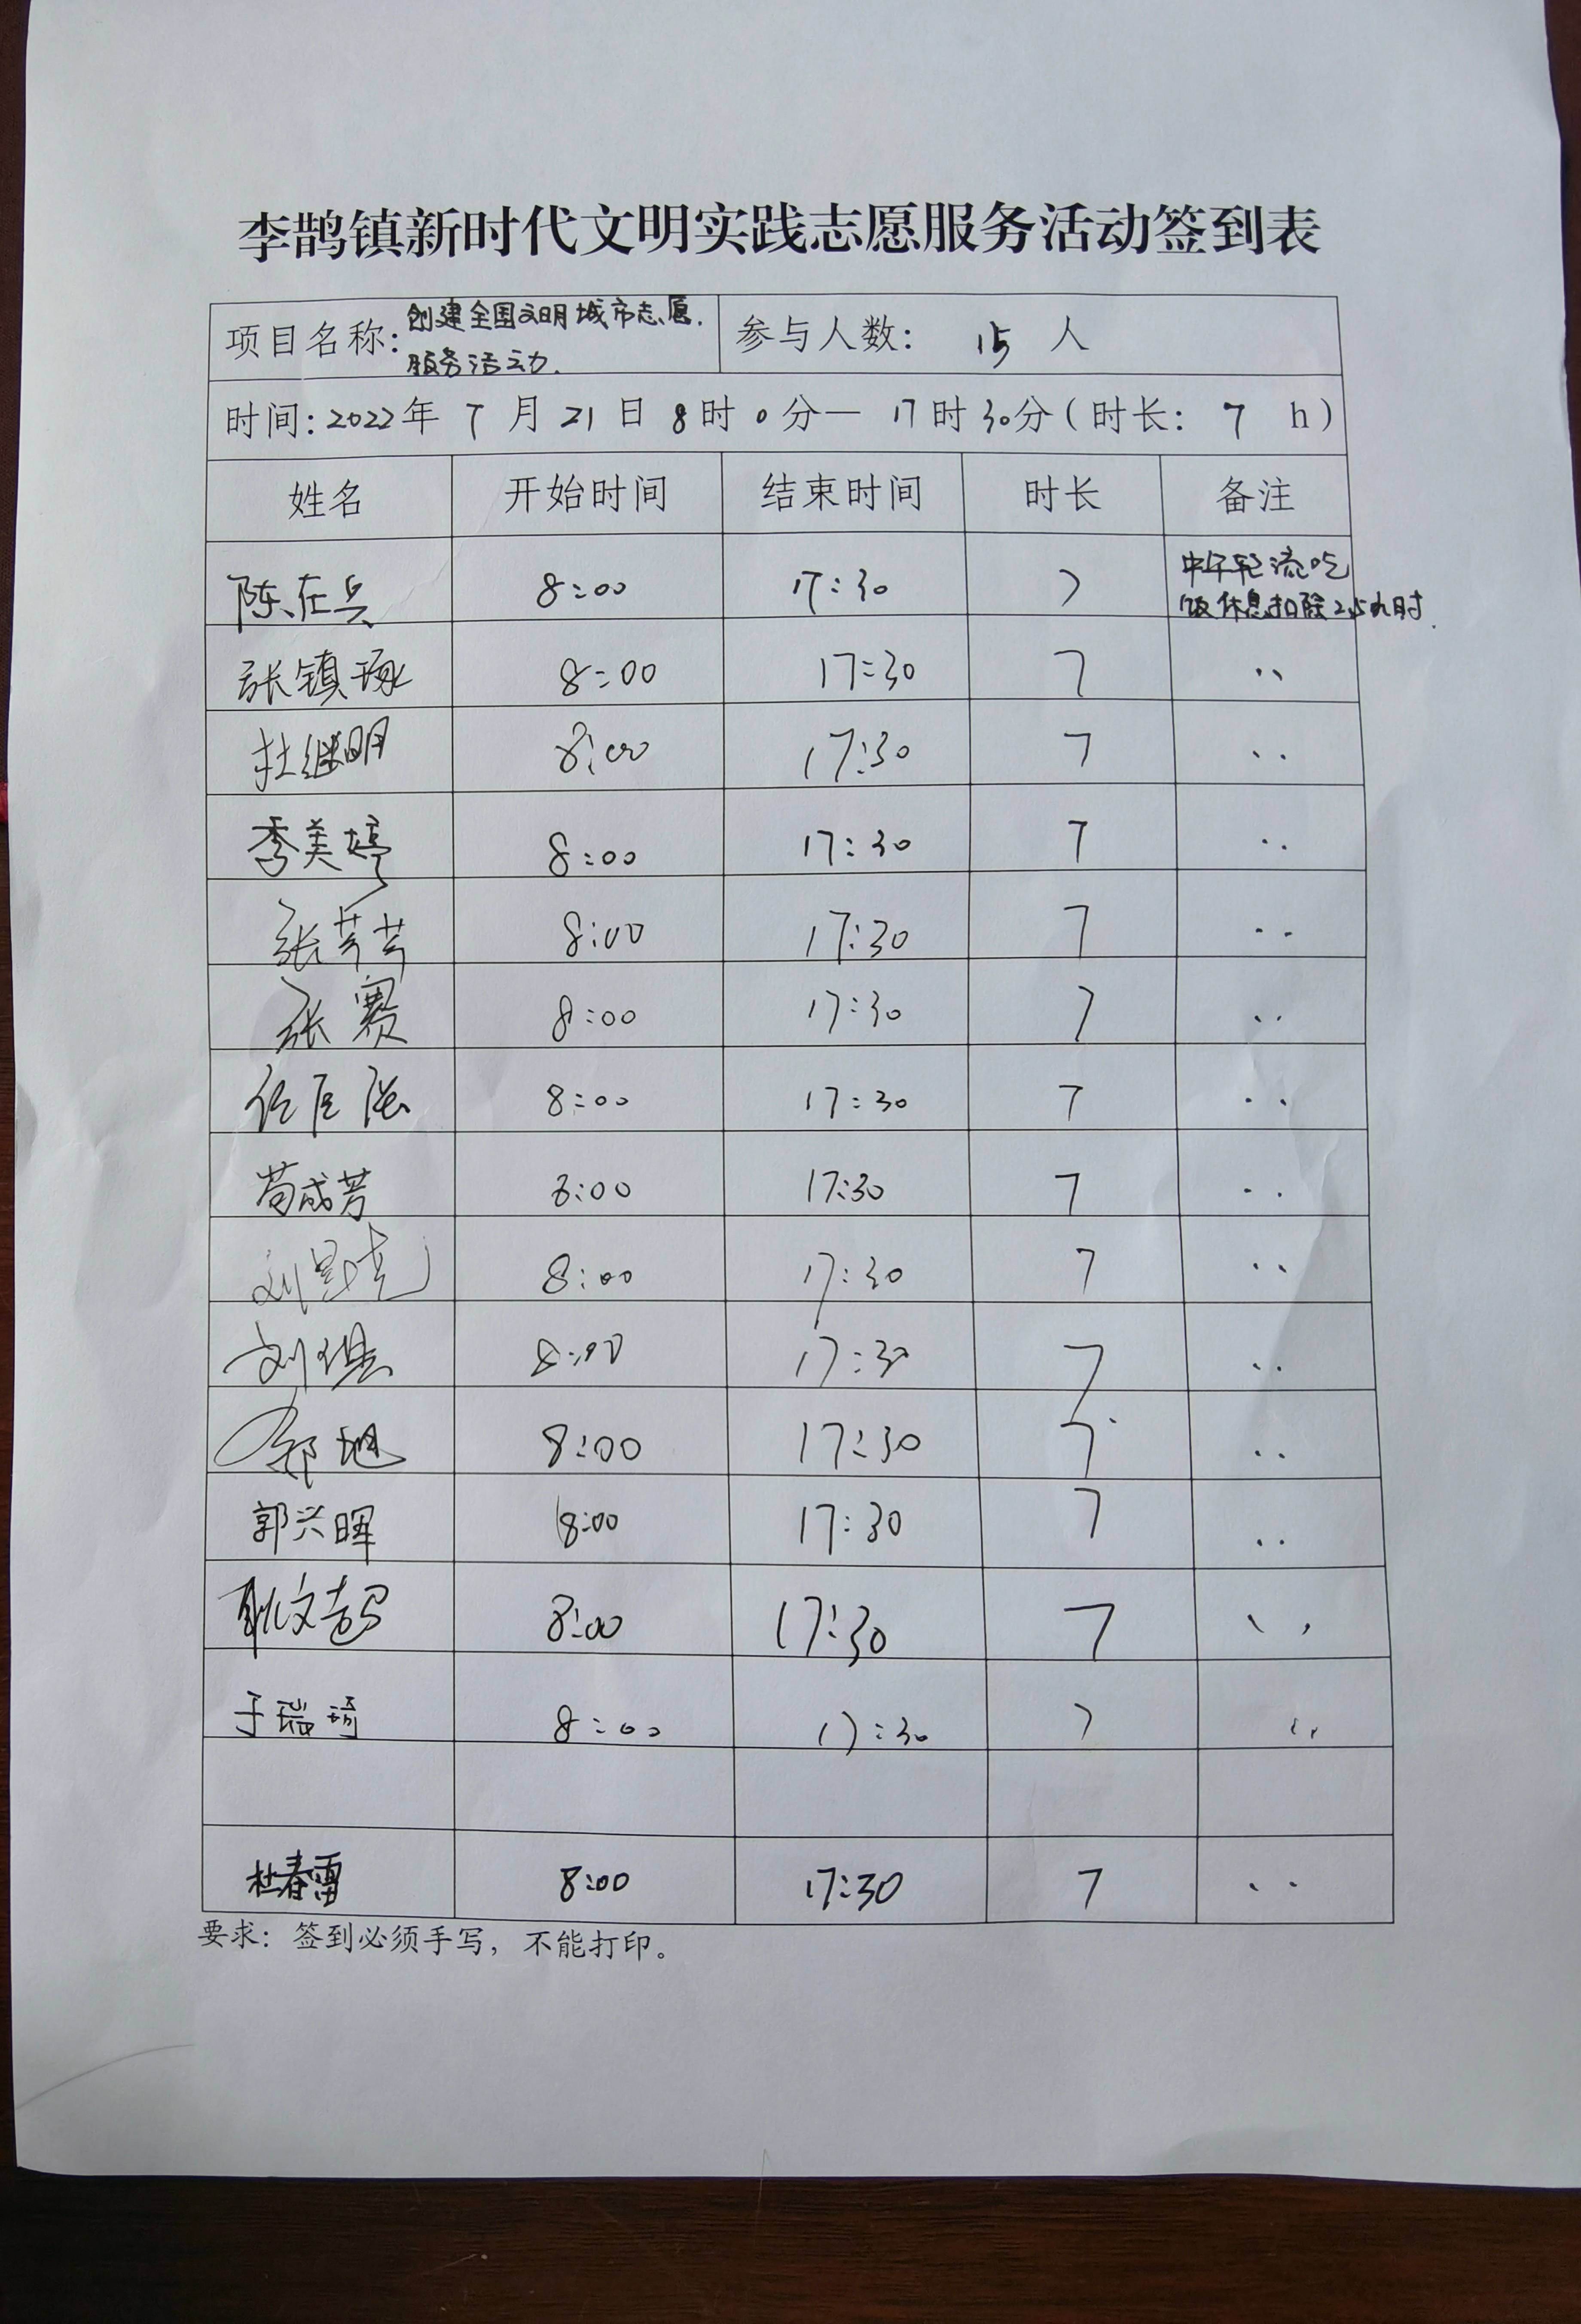 李鹊镇新时代文明实践志愿服务活动签到表
项目名称: 创建全国文明城市志愿服务活动. 参与人数: 15 人
时间: 2022年 7 月 21 日 8 时 0 分— 17 时 30分 (时长: 7 h)
姓名 开始时间 结束时间 时长 备注
陈在兵 8:00 17:30 7 中午轮流吃饭休息扣除2.5小时.
张镇琢 8:00 17:30 7 ··
杜继明 8:00 17:30 7 ··
季美婷 8:00 17:30 7 ··
张芳芳 8:00 17:30 7 ··
张赛 8:00 17:30 7 ··
8:00 17:30 7 ··
荀成芳 8:00 17:30 7 ··
刘 8:00 17:30 7 ··
刘 8:00 17:30 7 ··
8:00 17:30 7 ··
郭兴晖 8:00 17:30 7 ··
耿文 8:00 17:30 7 ··
于瑞琦 8:00 17:30 7 ··
杜春雷 8:00 17:30 7 ··
要求: 签到必须手写, 不能打印。